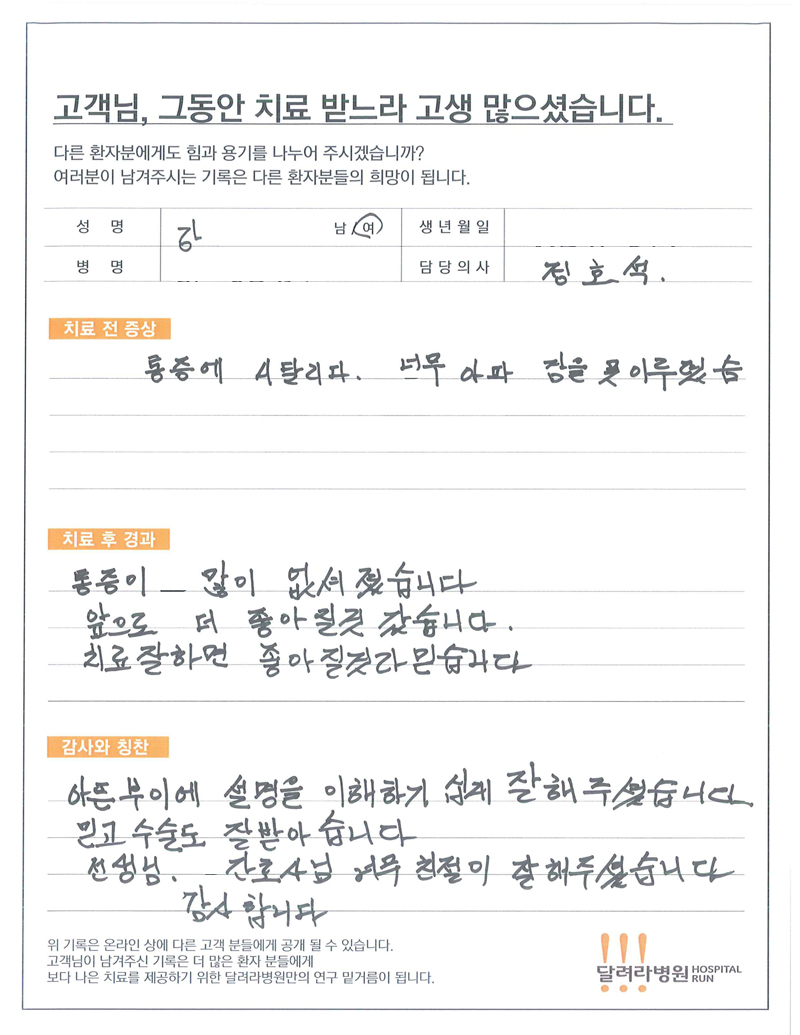 고객님, 그동안 치료 받느라 고생 많으셨습니다.
다른 환자분에게도 힘과 용기를 나누어 주시겠습니까?
여러분이 남겨주시는 기록은 다른 환자분들의 희망이 됩니다.
성 명 강 남 / 여 생년월일
병 명 담당의사 정호석.
치료 전 증상
통증에 시달리다. 너무 아파 잠을 못이루웠슴
치료 후 경과
통증이 많이 없셔졌습니다
앞으로 더 좋아질것 갔습니다.
치료잘하면 좋아질것라 믿습니다
감사와 칭찬
아픈부이에 설명을 이해하기 쉽게 잘해주셨습니다.
믿고 수술도 잘받아습니다
선생님. 간호사님 너무 친절이 잘해주셨습니다
감사합니다
위 기록은 온라인 상에 다른 고객 분들에게 공개 될 수 있습니다.
고객님이 남겨주신 기록은 더 많은 환자 분들에게
보다 나은 치료를 제공하기 위한 달려라병원만의 연구 밑거름이 됩니다.
!!!
달려라병원 HOSPITAL RUN